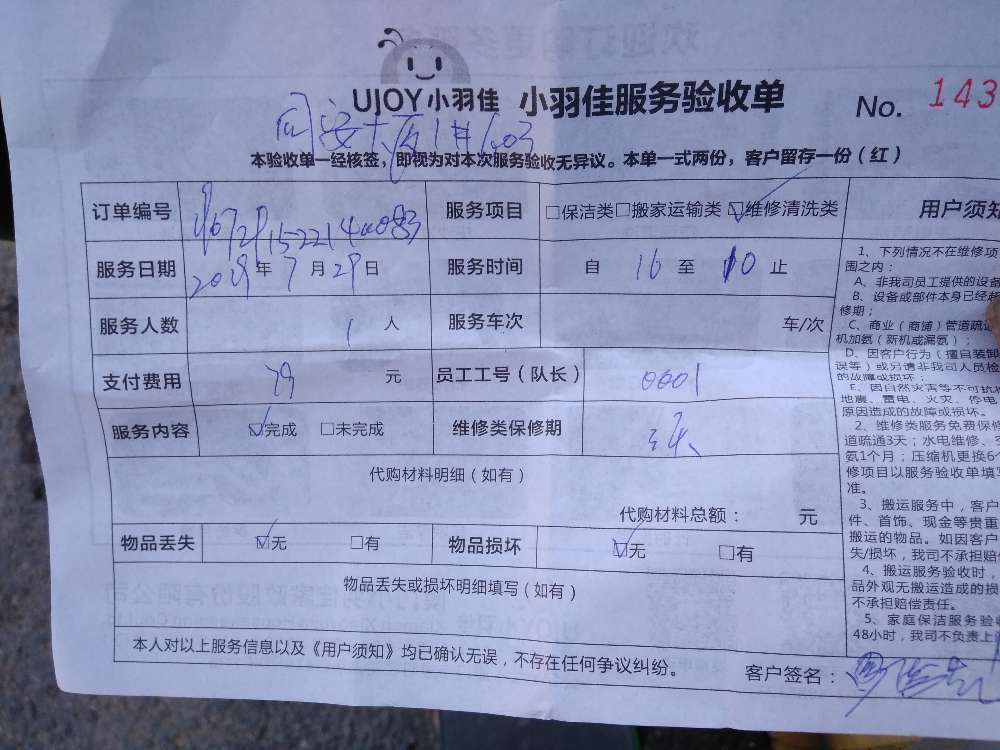 UJOY小羽佳 小羽佳服务验收单 No. 143
本验收单一经核签，即视为对本次服务验收无异议。本单一式两份，客户留存一份（红）
订单编号
服务项目 □保洁类□搬家运输类☑维修清洗类
用户须知
服务日期 2019年7月29日
服务时间 自 16 至 10 止
服务人数 1 人
服务车次 车/次
支付费用 元
员工工号（队长） 0001
服务内容 ☑完成 □未完成
维修类保修期 3天
代购材料明细（如有）
代购材料总额： 元
物品丢失 ☑无 □有
物品损坏 ☑无 □有
物品丢失或损坏明细填写（如有）
本人对以上服务信息以及《用户须知》均已确认无误，不存在任何争议纠纷。
客户签名：
1、下列情况不在维修项
围之内：
A、非我司员工提供的设备
B、设备或部件本身已经超
修期；
C、商业（商铺）管道疏通
机加氨（新机或漏氨）；
D、因客户行为（擅自装卸
误等）或另请非我司人员检
的故障或损坏；
E、因自然灾害等不可抗
地震、雷电、火灾、停电
原因造成的故障或损坏。
2、维修类服务免费保修
道疏通3天；水电维修、
氨1个月；压缩机更换6个
修项目以服务验收单填写
准。
3、搬运服务中，客户
件、首饰、现金等贵重
搬运的物品。如因客户
失/损坏，我司不承担赔偿
4、搬运服务验收时，
品外观无搬运造成的损
不承担赔偿责任。
5、家庭保洁服务验收
48小时，我司不负责上